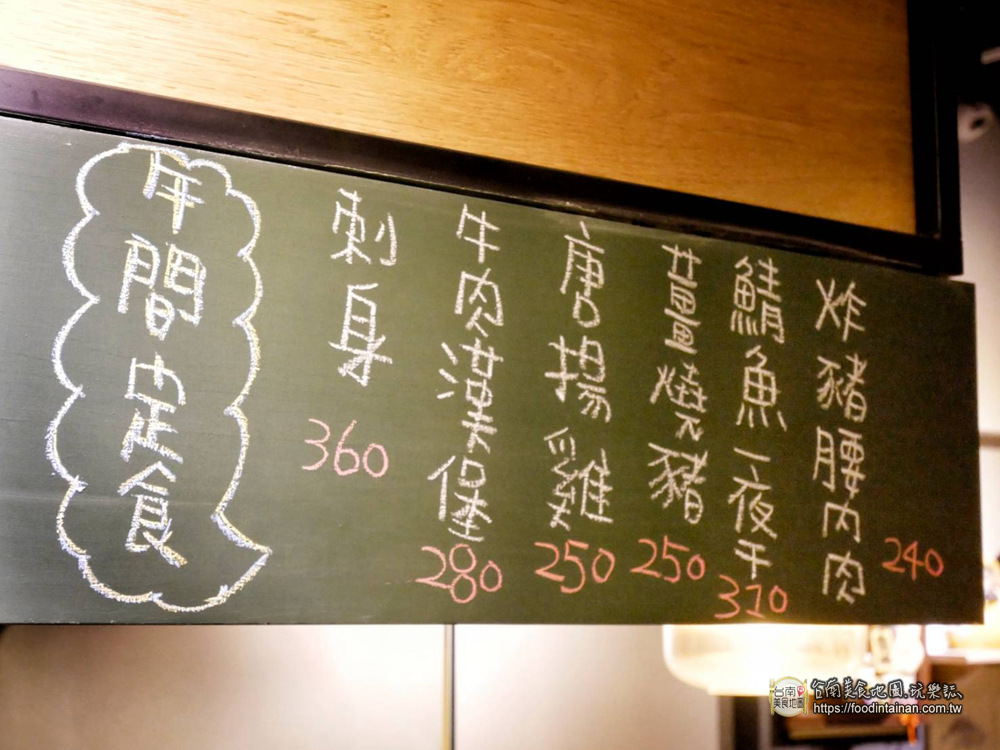 午間定食
刺身
360
牛肉漢堡
280
唐揚雞
250
薑燒豬
250
鯖魚一夜干
310
炸豬腰內肉
240
台南美食地圖
台南美食地圖.玩樂誌、
https://foodintainan.com.tw